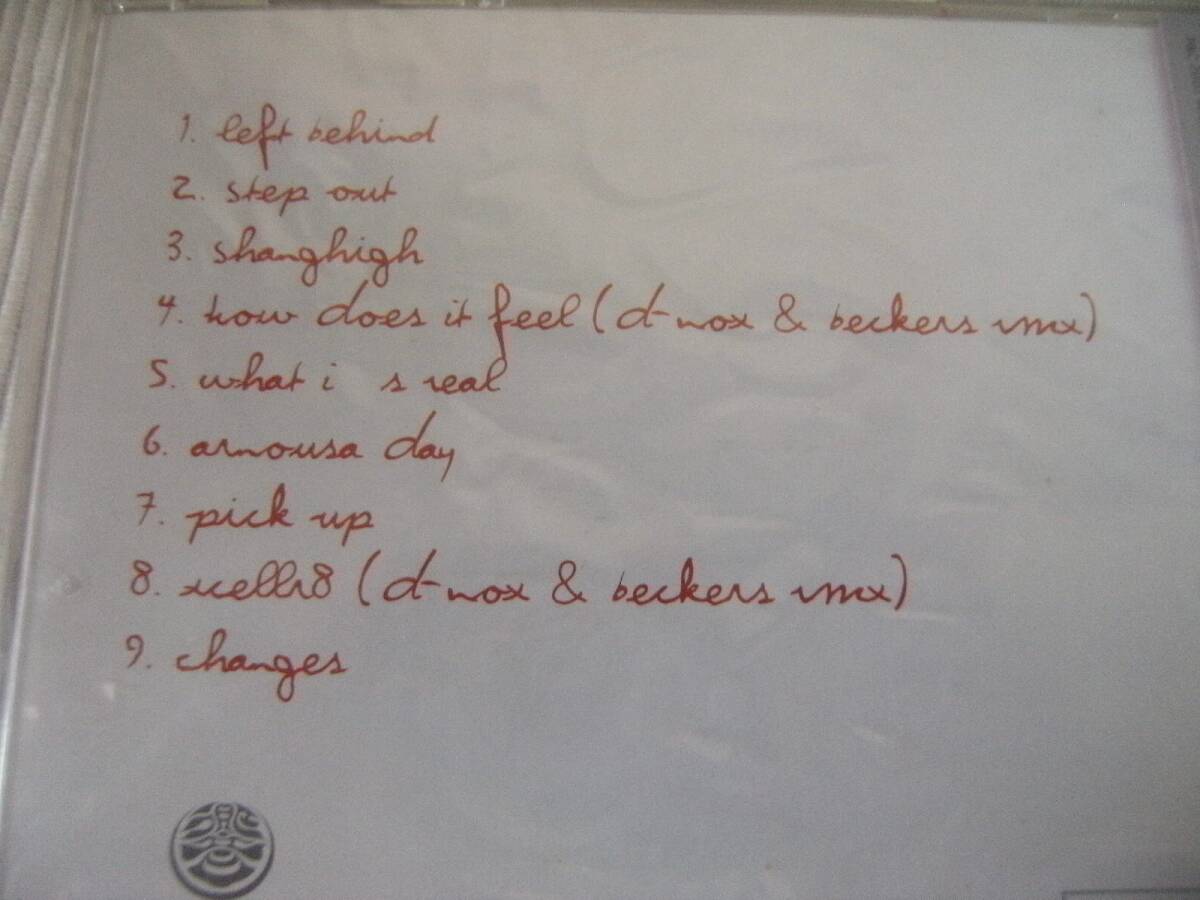 1. left behind
2. step out
3. shanghigh
4. how does it feel (d-nox & beckers rmx)
5. what i s real
6. arnousa day
7. pick up
8. xcellr8 (d-nox & beckers rmx)
9. changes